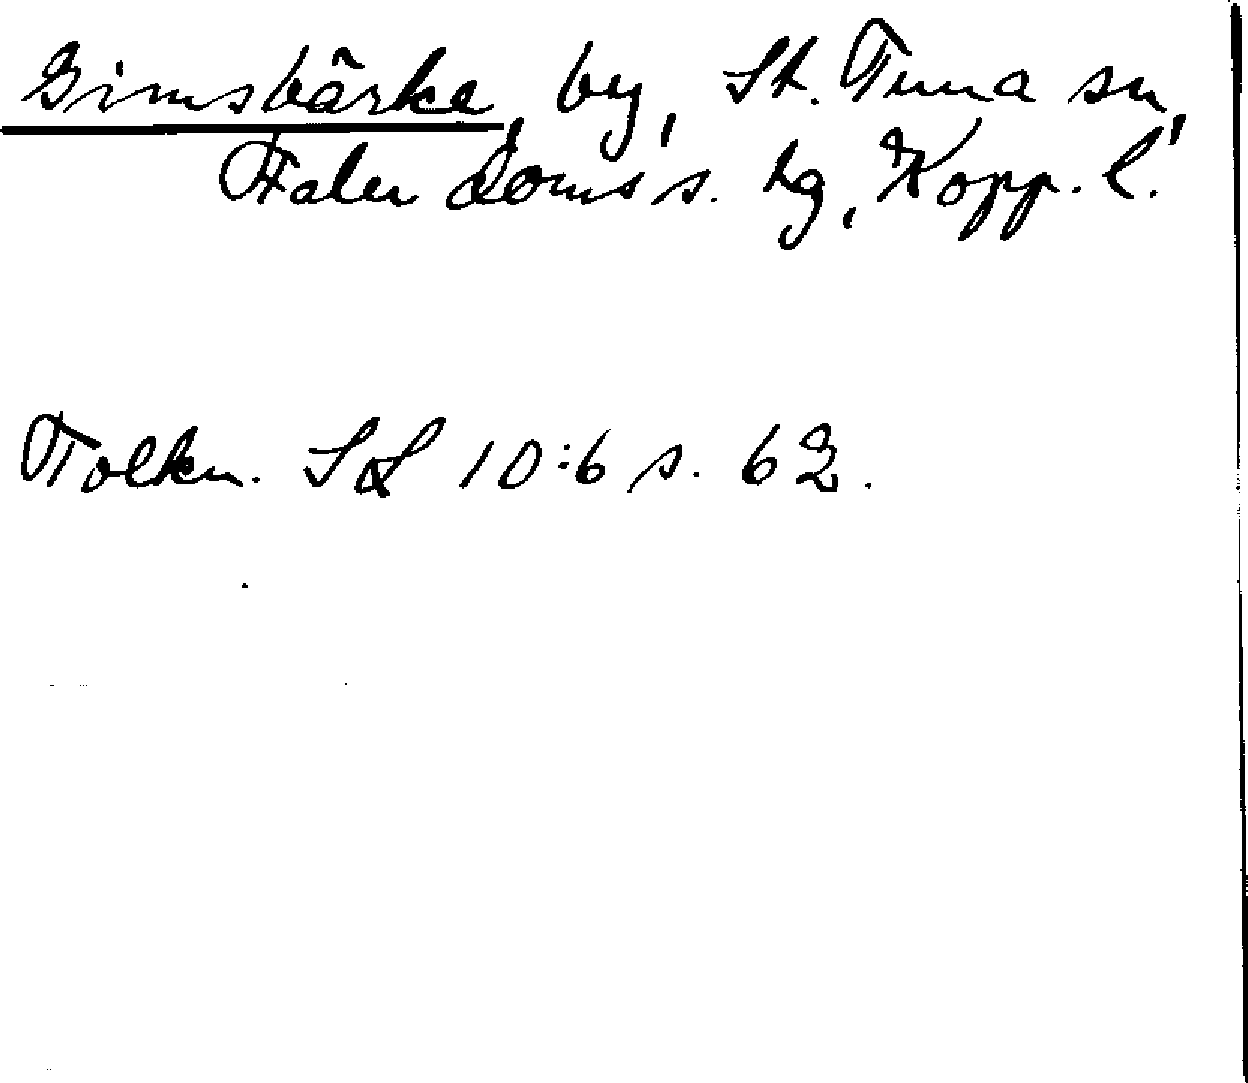 Gimsbärke, by, St. Tuna sn,
Falu Doms s. hg, Kopp. l.
Tolkn. SL 10:6 s. 62.